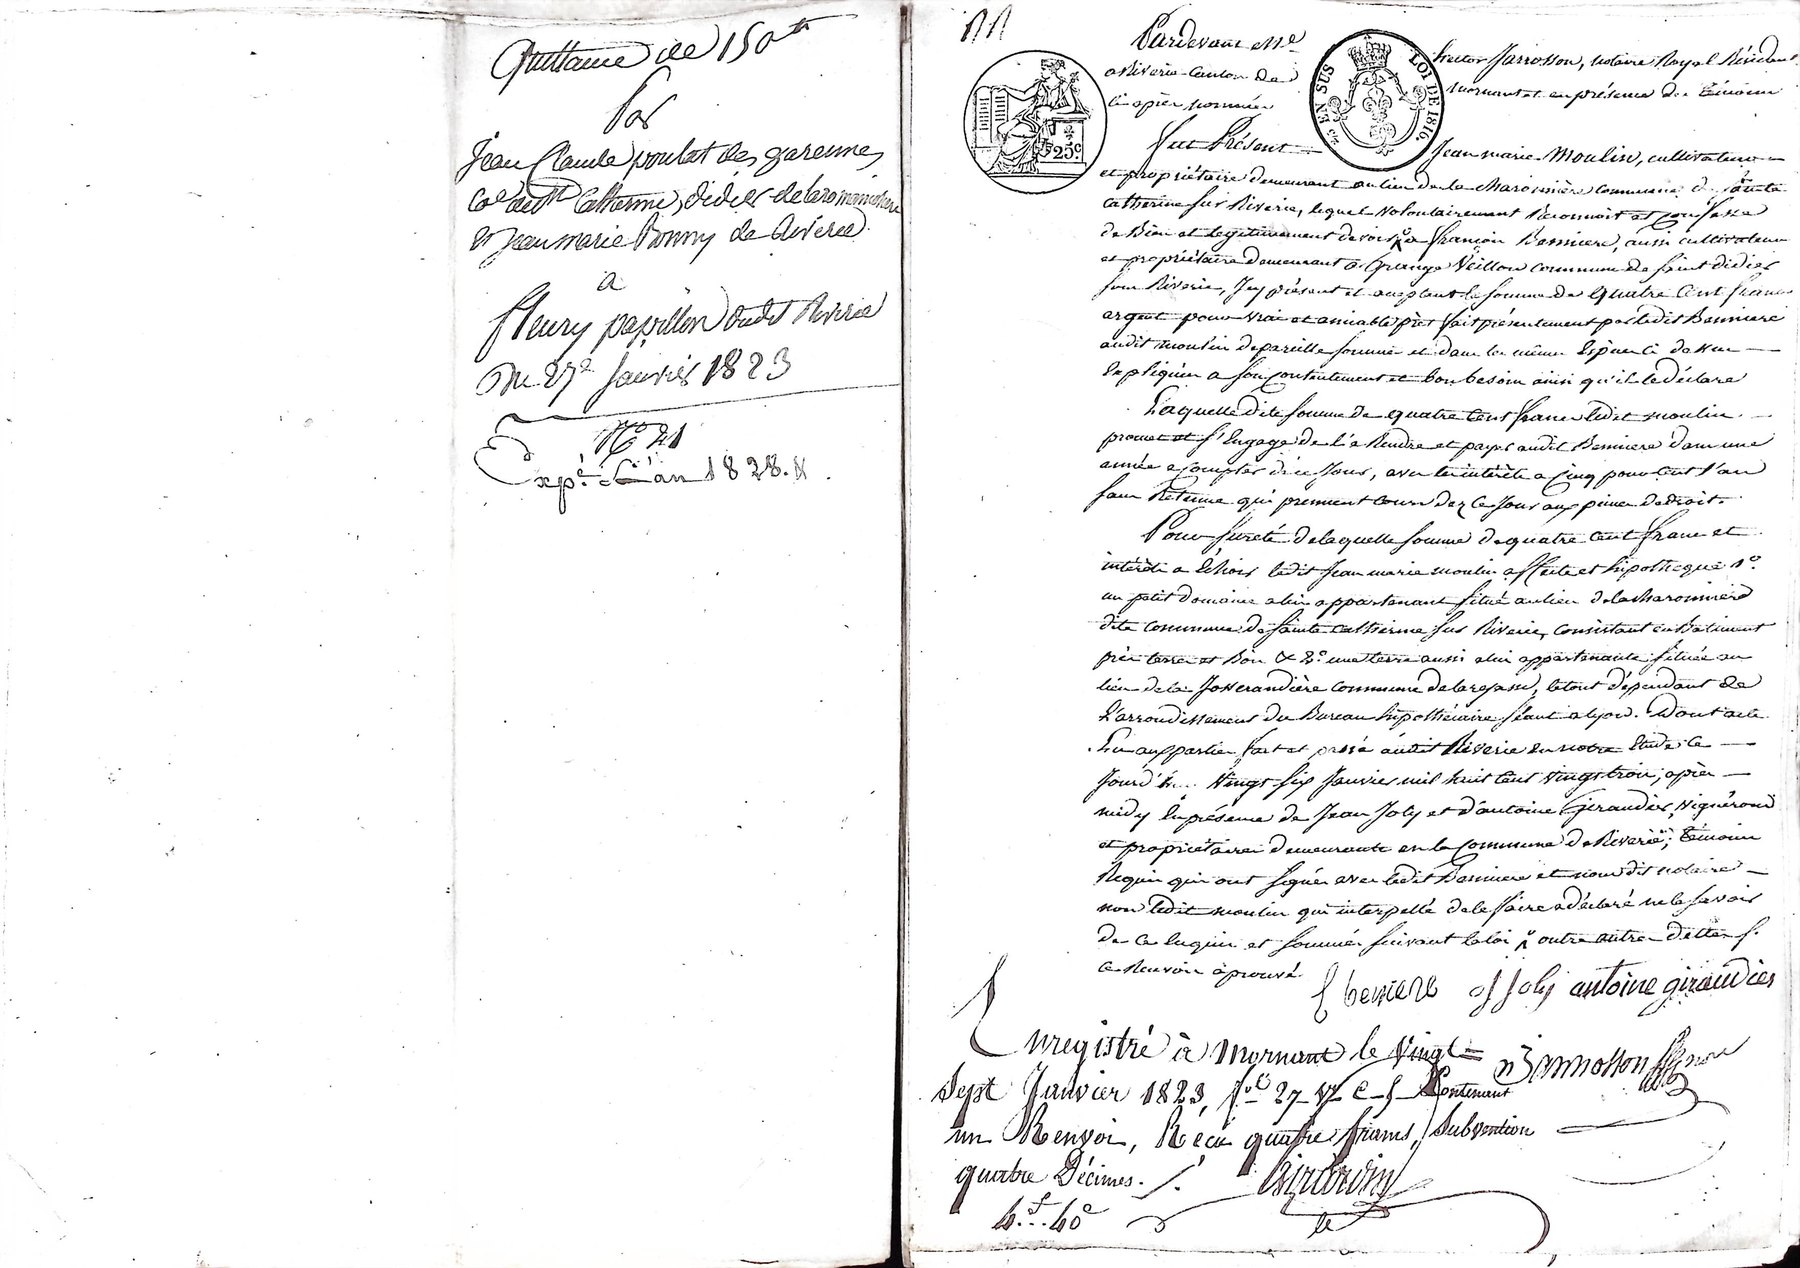 Quittance de 150 ff
Par
Jean Claude poulat des garennes
Cne de Ste Catherine, didier de la romanchere
& Jean marie Bonny de Riverie
a
fleury papillon dudit Riverie
Du 27e Janvier 1823
No 21
Expé. L'an 1828.
Pardevant Me hector Jarrosson, notaire Royal Résidant
a Riverie Canton de Mornant et en présence des témoins
ci après nommés
25 EN SUS LOI DE 1816
25c
Fut Présent Jean marie Moulin, cultivateur
et propriétaire demeurant au lieu de la charonnière commune de Sainte
Catherine sur Riverie, lequel volontairement Reconnoit et confesse
de Bien et legitimement devoir a françois Bessiere, aussi cultivateur
et propriétaire demeurant a Grange Veillon commune de Saint didier
sous Riverie, Icy présent et acceptant la somme de quatre Cent francs
argent pour vrai et amiable prêt fait présentement par ledit Bessiere
audit moulin de pareille somme et dans les mêmes Espèces ci dessus
Expliquées a son contentement et bon besoin ainsi qu'il le déclare
Laquelle dite somme de quatre Cent francs ledit moulin
promet et s'Engage de la Rendre et payer audit Bessiere dans une
année a compter de ce Jour, avec les intérêts a Cinq pour Cent l'an
sans Retenue qui prennent cours dez ce Jour aux peines de droit.
Pour sureté de laquelle somme de quatre cent francs et
intérêts a Echoir ledit Jean marie moulin affecte et hipotheque 1o
un petit domaine a lui appartenant situé au lieu de la charonnière
dite commune de Sainte catherine sur Riverie, consistant en Batiments
prés terres et Bois & 2o une terre aussi a lui appartenante située au
lieu de la Josserandière commune de larajasse, le tout dépendant de
L'arrondissement du Bureau hipothécaire séant a lyon. Dont acte
En aux parties fait et passé audit Riverie en notre Etude Ce
Jourd'h... vingt six Janvier mil huit Cent vingt trois, après
midy En présence de Jean Joly et d'antoine Giraudier, vignerons
et propriétaires demeurants en la Commune de Riverie, témoins
Requis qui ont signés avec ledit Bessiere et nous dit notaire
non ledit moulin qui interpellé de le faire a déclaré ne le savoir
de ce Enquis et sommés suivant la loi outre autres dettes
ce Renvoi aprouvé.
f bessiere J Joly antoine giraudier
Enregistré à Mornant le Vingt
Jarrosson
Sept Janvier 1823, fol. 27 Vo C. 5 Contenant
un Renvoi, Reçu quatre francs, Subvention
quatre Décimes.
4 f. 40 c